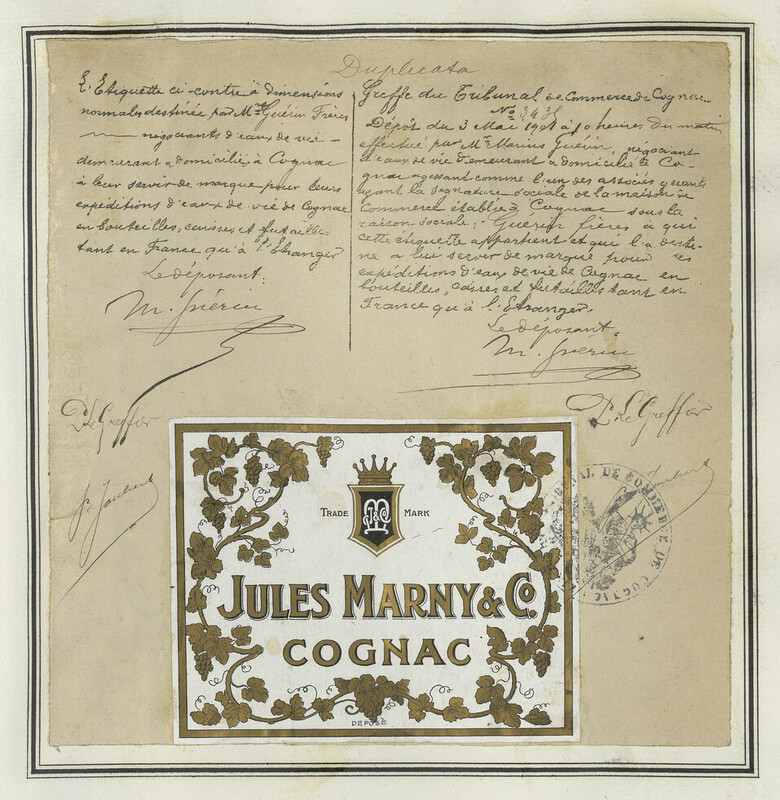 Duplicata
L'Etiquette ci-contre à dimensions
normales destinée par Mrs Guérin Frères
négociants d'eaux de vie
demeurant & domiciliés à Cognac
à leur servir de marque pour leurs
expéditions d'eaux de vie de Cognac
en bouteilles, caisses et futailles
tant en France qu'à l'Etranger
Le déposant:
M. Guérin
Greffe du Tribunal de Commerce de Cognac
No 3435
Dépôt du 3 Mai 1901 à 10 heures du matin
effectué par Mr Marius Guérin, négociant
d'eaux de vie demeurant & domicilié à Co-
gnac agissant comme l'un des associés gérants
ayant la signature sociale de la maison de
Commerce établie à Cognac sous la
raison sociale: Guérin frères à qui
cette étiquette appartient et qui l'a desti-
né à leur servir de marque pour les
expéditions d'eaux de vie de Cognac en
bouteilles, caisses et futailles tant en
France qu'à l'Etranger.
Le déposant:
M. Guérin
Pr Le Greffier
Pr Le Greffier
TRADE MARK
JULES MARNY & Co.
COGNAC
DÉPOSÉ
TRIBUNAL DE COMMERCE DE COGNAC